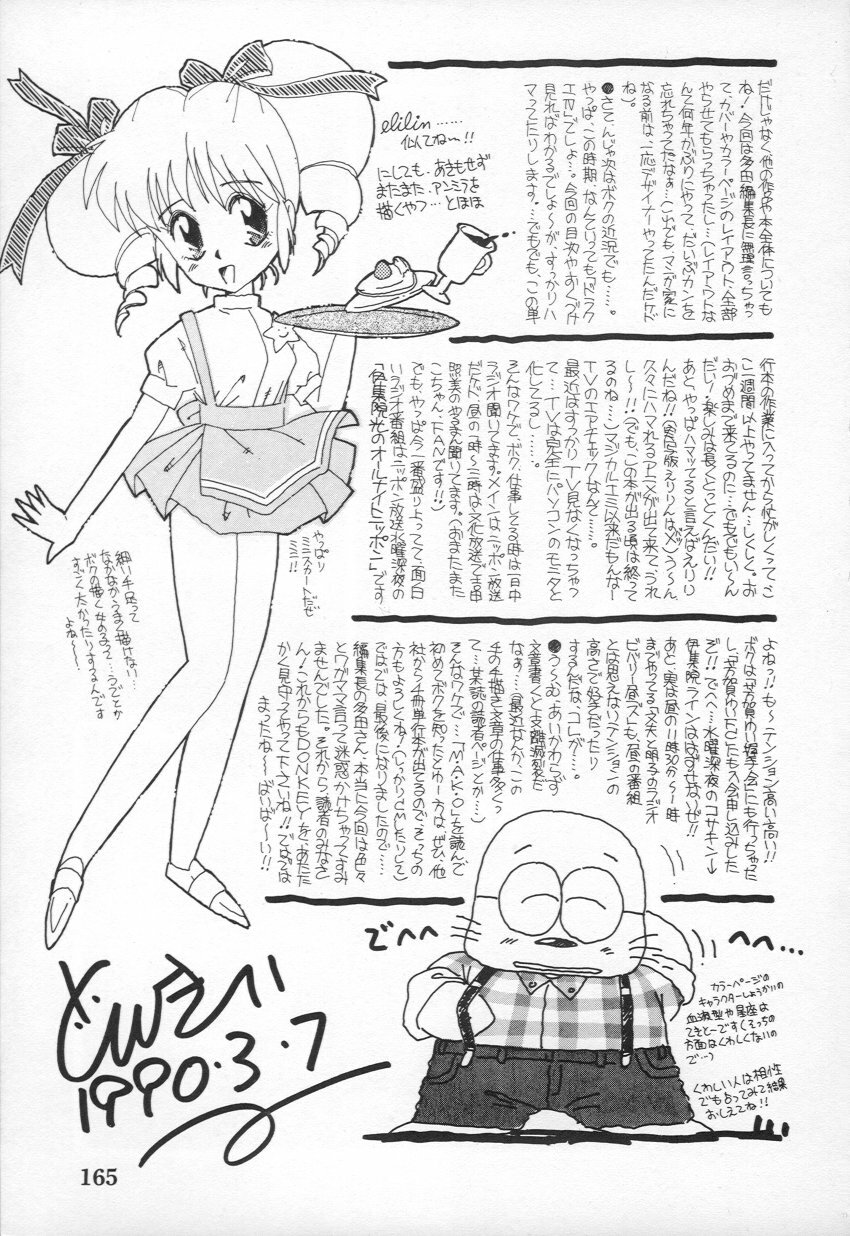 だけじゃなく他の作品や本全体についても
ね！今回は多田編集長に無理言っちゃっ
て、カバーやカラーページのレイアウト、全部
やらせてもらっちゃったし…(レイアウトな
んて何年かぶりにやって、だいぶカンを
忘れちゃってたなあ…(これでもマンガ家に
なる前は、一応デザイナーやってたんだけど
ね)。
●さて、んじゃ次はボクの近況でも……。
やっぱ、この時期、なんといっても「ドラク
エⅣ」でしょ…。今回の目次や、おくづけ
見ればわかるでしょーが、すっかりハ
マってたりします。…でもでも、この単
行本の作業に入ってから忙がしくって、こ
こ二週間以上やってません…しくしく。お
おづめまで来てるのに…でもでもいーん
だい！楽しみは長くとっとくんだい!!
あと、やっぱハマッてると言えばえりり
んだね!!
久々にハマれるアニメが出て来て、うれ
し〜!!(でも、この本が出る頃は終って
るのね…)マジカルエミ以来だもんなー
TVのエアチェックなんて……。
最近はすっかりTV見なくなっちゃっ
て…TVは完全にパソコンのモニタと
化してるし……。
そんなワケで、ボク、仕事してる時は一日中
ラジオ聞いてます。メインはニッポン放送
だけど、昼の1時〜三時は文化放送で吉田
照美のやるまん聞いてます。(おまたまた
こちゃん、FANです!!)
でも、やっぱ今一番盛り上ってて面白
いラジオ番組はニッポン放送水曜深夜の
「伊集院光のオールナイトニッポン」です
よねっ!!も〜テンション高い高い!!
ボクは「芳賀ゆい握手会」にも行っちゃた
し、「芳賀ゆいFC」にも入会申し込みした
ぞ!!でへへ…水曜深夜のコサキン→
伊集院ラインははずせないぜ!!
あと、実な昼の11時30分〜1時
までやってる「丈夫と明子のラジオ
ビバリー昼ズ」も、昼の番組
とは思えないテンションの
高さで好きだったり
するんだな、コレが…。
●う〜む、あいかわらず
文章書くと支離滅裂だ
なぁ…(最近なんか、この
手の手描き文章の仕事多くっ
て…某誌の読者ページとか…)
そんなワケで…「MAKO」を読んで
初めてボクを知ったとゆー方は、ぜひ、他
社から4冊単行本が出てるので、そっちの
方もよろしくね！(しっかりCMしたりして)
ではでは、最後になりましたので……
編集長の多田さん、本当に今回は色々
とワガママ言って迷惑かけちゃってすみ
ませんでした。それから読者のみなさ
ん！これからもDONKEYを、あたた
かく見守ってやって下さいね!!ではでは
まったね〜〜ばいば〜い!!
elilin……
似てね〜!!
にしても、あきもせず
またまた、アンミラを
描くやつ…とほほ
やっぱり
ミニスカートだも
ミミ!!
細い手足って
なかなかうまく描けない…
ボクの描く女のコって…うでとか
すごく太かったりするんです
よね〜〜。
でへへ
へへ…
カラーページの
キャラクターしょうかいの
血液型や星座は
てきとーです(そっちの
方面はくわしくないの
で…)
くわしい人は相性
でも占ってみて結果
おしえてね!!
1990.3.7
165